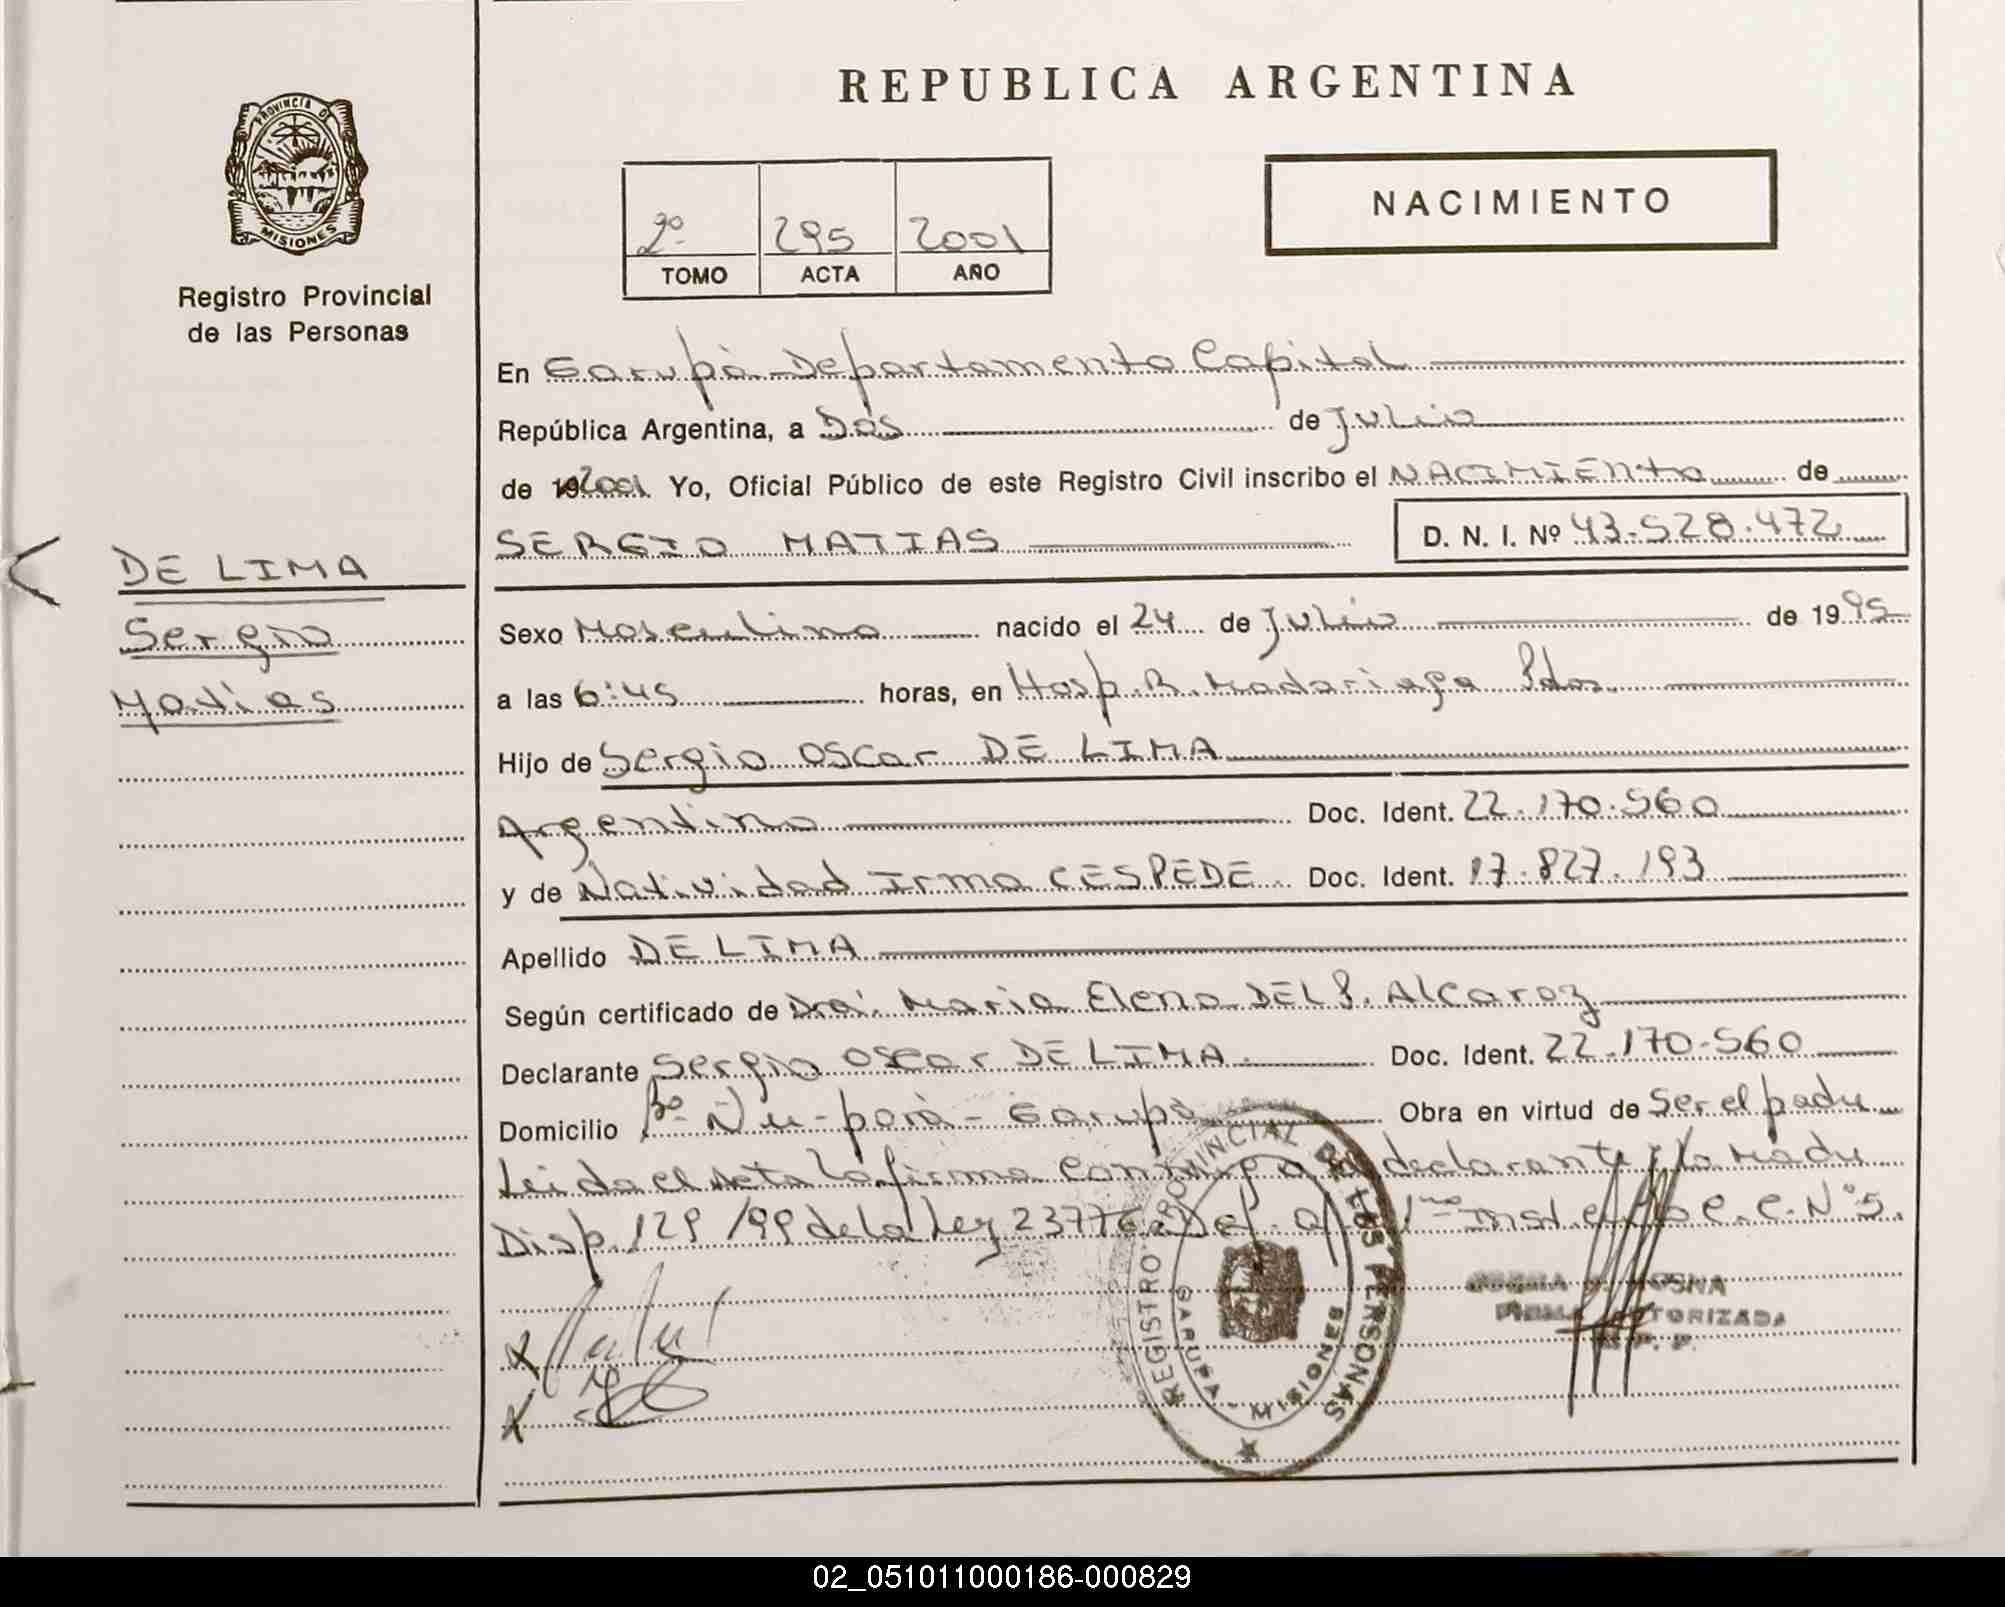 REPUBLICA ARGENTINA
PROVINCIA DE
MISIONES
Registro Provincial
de las Personas
NACIMIENTO
2º 295 2001
TOMO ACTA AÑO
En Garupà - Departamento Capital
República Argentina, a Dos de Julio
de 192001 Yo, Oficial Público de este Registro Civil inscribo el NACIMIENTO de
SERGIO MATIAS D. N. I. Nº 43.528.472
DE LIMA
Sergio
Matias
Sexo Masculino nacido el 24 de Julio de 1995
a las 6:45 horas, en Hosp. R. Madariaga Pdas.
Hijo de Sergio Oscar DE LIMA
Argentino Doc. Ident. 22.170.560
y de Natividad Irma CESPEDE Doc. Ident. 17.827.193
Apellido DE LIMA
Según certificado de Dra. Maria Elena DEL P. Alcaraz
Declarante Sergio Oscar DE LIMA Doc. Ident. 22.170.560
Domicilio Bº Ñu-porà - Garupà Obra en virtud de Ser el padre
Leida el Acta la firma conmigo el declarante y la Madre
Disp. 129/99 de la Ley 23776 C.C. Nº 5.
REGISTRO PROVINCIAL DE LAS PERSONAS
GARUPA - MISIONES
FIRMA AUTORIZADA
R. P. P.
02_051011000186-000829